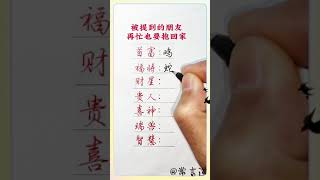 被提到的朋友
再忙也要抱回家
首富：鸡
福将：蛇
财星：
贵人：
喜神：
瑞兽：
智慧：
福
财
贵
喜